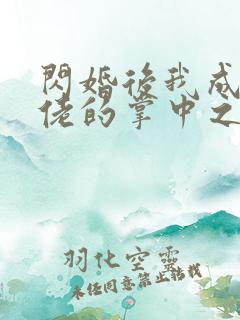 閃婚後我成
佬的掌中之
羽化空靈
未經同意禁止轉載